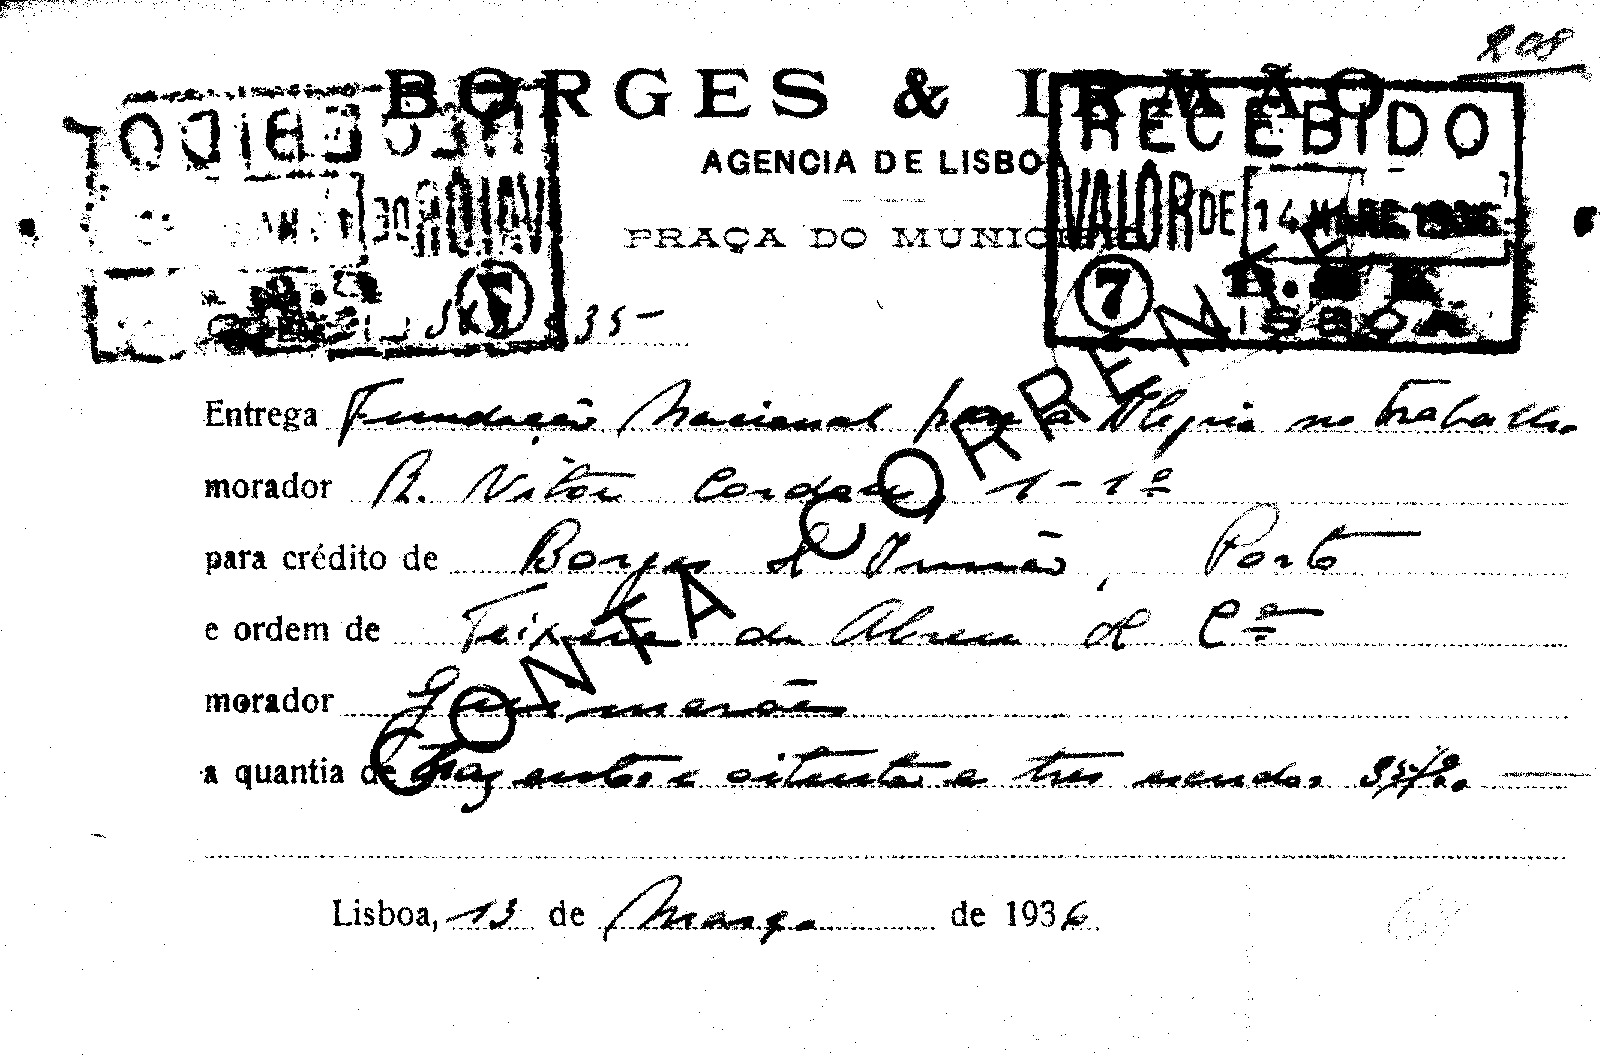 208
BORGES & IRMÃO
RECEBIDO
AGENCIA DE LISBOA
VALOR DE 14 MAR. 1936
PRAÇA DO MUNICI
7
LISBOA
35-
Entrega Fundação Nacional para a Alegria no Trabalho
morador R. Vitor Cordon, 1-1º
para crédito de Borges & Irmão, Porto
e ordem de Teixeira de Abreu & Cª
morador Guimarães
a quantia de Trezentos e oitenta e tres escudos 35/.
CONTA CORRENTE
Lisboa, 13 de Março de 1936